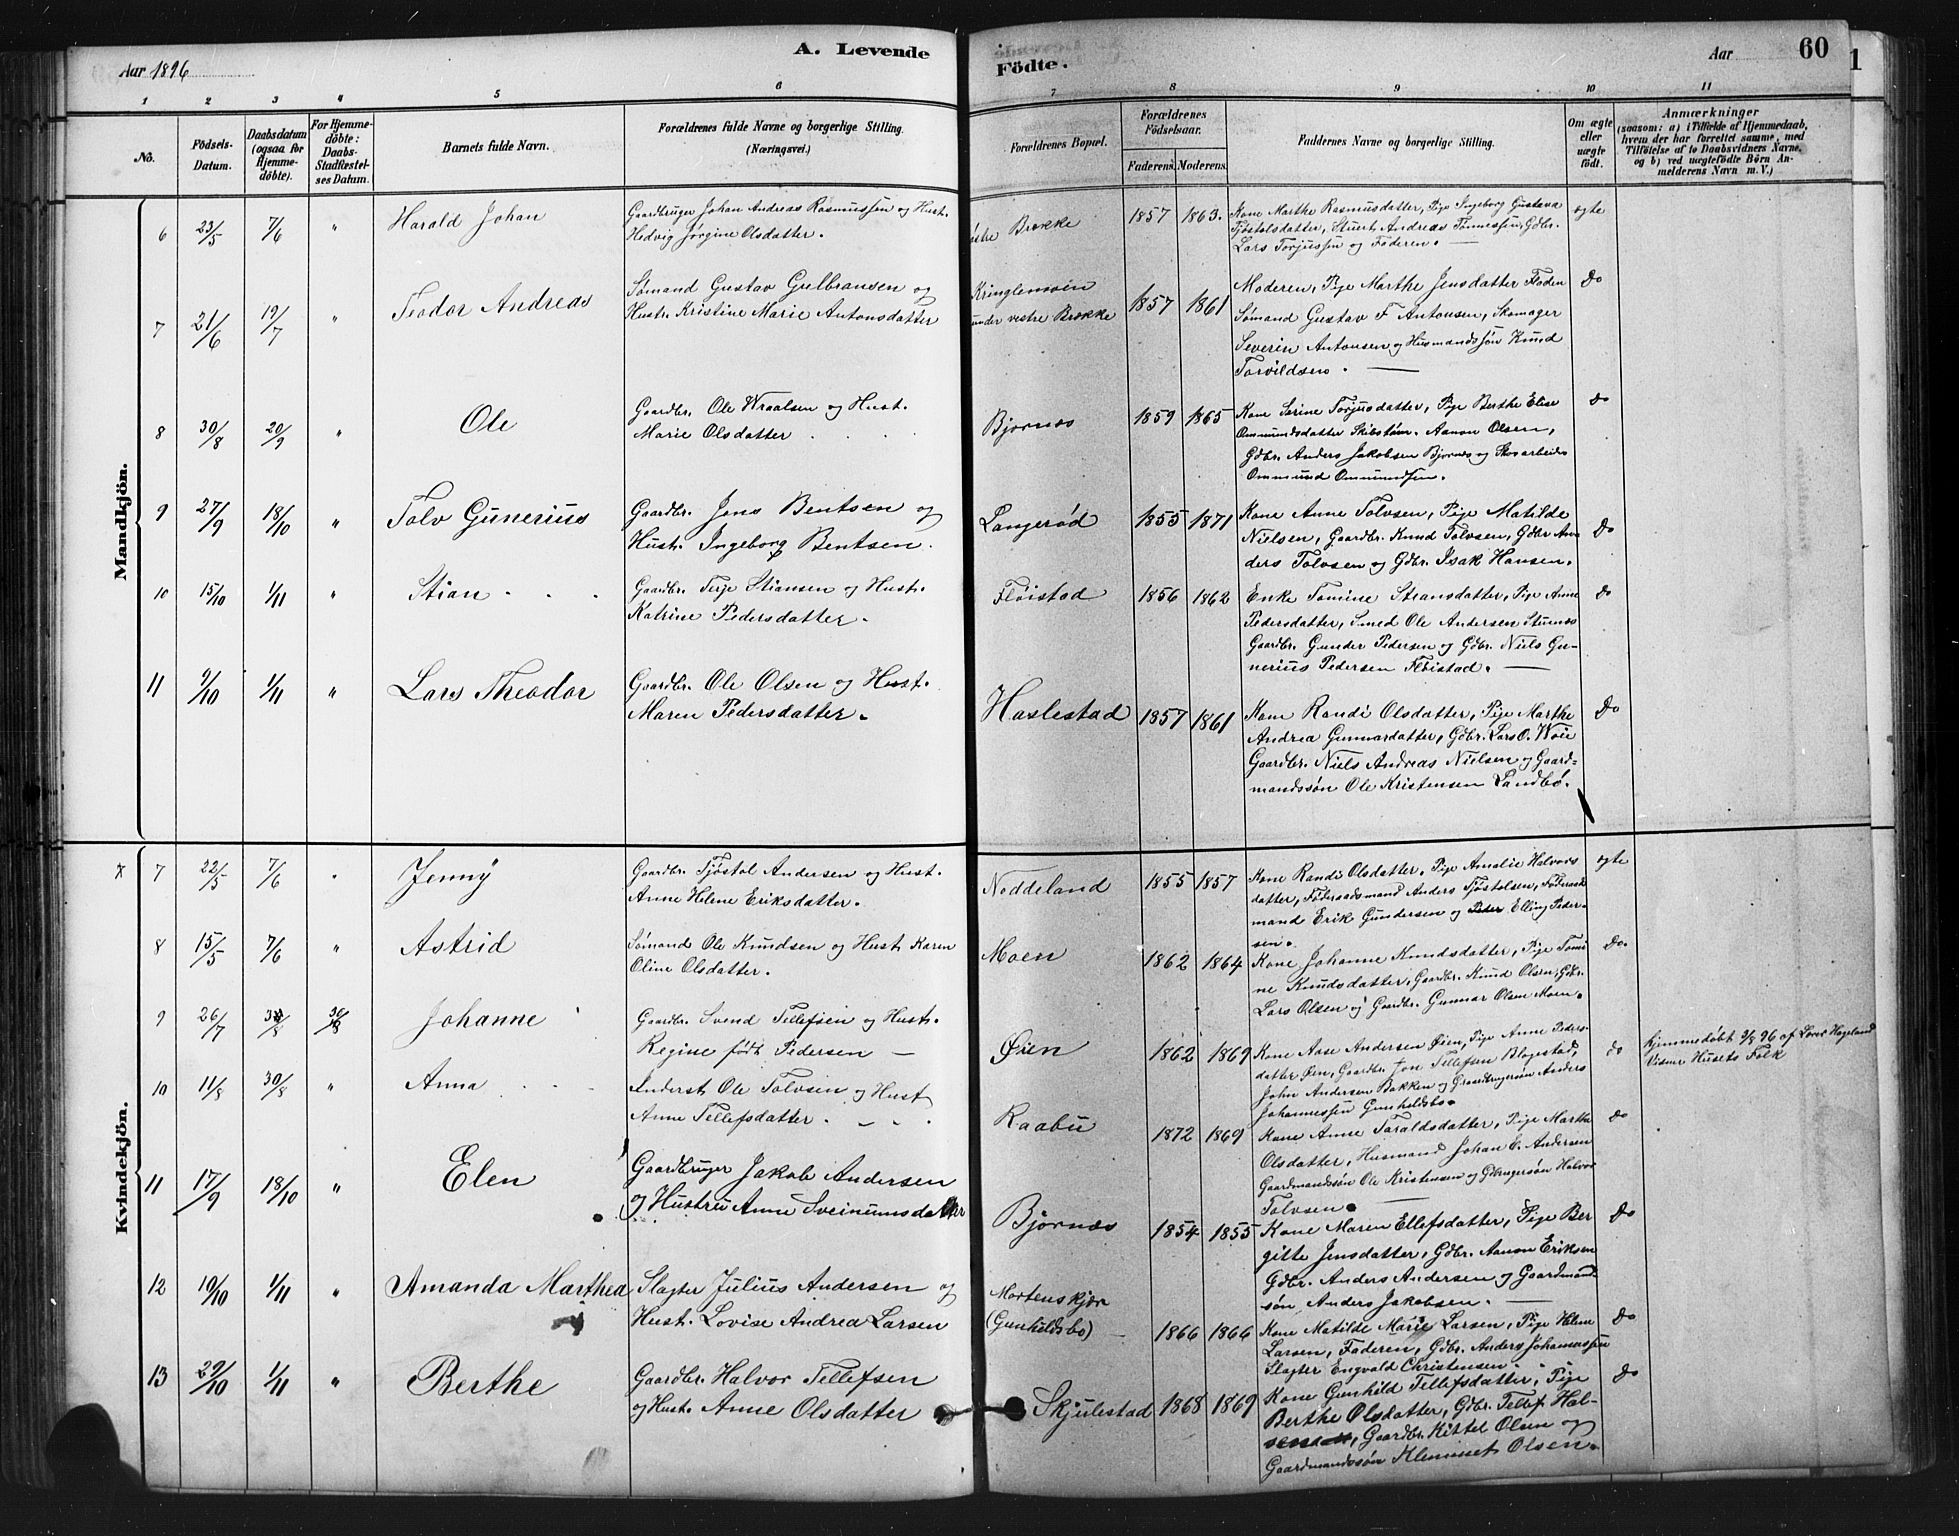 Aar 1896
A. Levende
Födte.
Aar
60
1
1 2 3 4 5 6
7 8 9 10 11
No.
Födsels-
Datum.
Daabsdatum
(ogsaa for
Hjemme-
döbte).
For Hjemme-
döbte:
Daabs-
Stadfæstel-
ses Datum.
Barnets fulde Navn.
Forældrenes fulde Navne og borgerlige Stilling.
(Næringsvei.)
Forældrenes Bopæl.
Forældrenes
Födselsaar.
Faderens. Moderens.
Faddernes Navne og borgerlige Stilling.
Om ægte
eller
uægte
födt.
Anmærkninger
(saasom: a) i Tilfælde af Hjemmedaab,
hvem der har forrettet samme, med
Tilföielse af to Daabsvidners Navne,
og b) ved uægtefödte Börn An-
melderens Navn m. V.)
Mandkjön.
6 23/5 7/6 " Harald Johan
Gaardbruger Johan Andreas Rasmussen og Hust.
Hedvig Jørgine Olsdatter.
østre Brække 1857 1863.
Kone Marthe Rasmusdatter, Pige Ingeborg Gustava
Tjøstolsdatter, Stuert Andreas Tønnessen, Gdbr.
Lars Torjussen og Faderen. —
ægte
7 21/6 19/7 " Teodor Andreas
Sømand Gustav Gulbransen og
Hustr. Kristine Marie Antonsdatter
Kringlemoen
under vestre Brække
1857 1861
Moderen, Pige Marthe Jensdatter Floden
Sømand Gustav F Antonsen, Skomager
Severin Antonsen og Husmandssøn Knud
Torvildsen. —
Do
8 30/8 20/9 " Ole
Gaardbr. Ole Wraalsen og Hust.
Marie Olsdatter
Bjørnæs 1859 1865
Kone Serine Torjusdatter, Pige Berthe Elise
Ommundsdatter Skibstøm. Aanon Olsen,
Gdbr. Anders Jakobsen Bjørnæs og Skoarbeider
Ommund Ommundsen.
Do
9 27/9 18/10 " Tolv Gunerius
Gaardbr. Jens Bentsen og
Hust. Ingeborg Bentsen.
Langerød 1855 1871
Kone Anne Tolvsen, Pige Matilde
Nielsen, Gaardbr. Knud Tolvsen, Gdbr An-
ders Tolvsen og Gdbr. Isak Hansen.
Do
10 15/10 1/11 " Stian
Gaardbr. Terje Stiansen og Hust.
Katrine Pedersdatter.
Fløistad 1856 1862
Enke Tomine Stiansdatter, Pige Anne
Pedersdatter, Smed Ole Andersen Stuenes
Gaardbr. Gunder Pedersen og Gdbr. Niels Gu-
nerius Pedersen Fløistad. —
Do
11 9/10 1/11 " Lars Theodor
Gaardbr. Ole Olsen og Hust.
Maren Pedersdatter.
Haslestad 1857 1861
Kone Randi Olsdatter, Pige Marthe
Andrea Gunnarsdatter, Gdbr. Lars O. Woie
Gaardbr. Niels Andreas Nielsen og Gaard-
mandssøn Ole Kristensen Landbø.
Do
Kvindekjön.
7 22/5 7/6 " Jenny
Gaardbr. Tjøstol Andersen og Hust.
Anne Helene Eriksdatter.
Noddeland 1855 1857
Kone Randi Olsdatter, Pige Amalie Halvors
datter, Føderaadsmand Anders Tjøstolsen, Føderaads
mand Erik Gundersen og Elling Peder-
sen.
ægte
8 15/5 7/6 " Astrid
Sømand Ole Knudsen og Hust. Karen
Oline Olsdatter.
Moen 1862 1864
Kone Johanne Knudsdatter, Pige Tomi
ne Knudsdatter, Gaardbr. Knud Olsen, Gdbr.
Lars Olsen og Gaardbr. Gunnar Olsen Moen.
Do.
9 26/7 30/8 Johanne
Gaardbr. Svend Tellefsen og Hust.
Regine født Pedersen —
Øien 1862 1869
Kone Aase Andersen Øien, Pige Anne Peders-
datter Øien, Gaardbr. Jon Tellefsen Blagestad,
John Andersen Bakken og Gaardbrugersøn Anders
Johannessen Gunheldsbo.
do
Hjemmedøbt 3/8 96 af Lærer Hageland
Vidner Husets Folk
10 11/8 30/8 " Anna
Inderst Ole Tolvsen og Hust
Anne Tellefsdatter.
Raabu 1872 1869
Kone Anne Taraldsdatter, Pige Marthe
Olsdatter, Husmand Johan C. Andersen
Gaardmandssøn Ole Kristensen og Gbrugersøn Halvor
Tolvsen.
Do
11 17/9 18/10 " Elen
Gaardbruger Jakob Andersen
og Hustru Anne Sveinumsdatter
Bjørnæs 1854 1855
Kone Maren Ellefsdatter, Pige Ber
gitte Jensdatter, Gdbr. Aanon Eriksen
Gdbr. Anders Andersen og Gaardmand-
søn Anders Jakobsen. —
Do
12 10/10 1/11 " Amanda Marthea
Slagter Julius Andersen og
Hust. Lovise Andrea Larsen
Mortenskjær
(Gunheldsbo) — 1866 1866
Kone Matilde Marie Larsen, Pige Helene
Larsen, Faderen, Gdbr. Anders Johannessen
Slagter Engvald Christensen
Do
13 29/10 1/11 " Berthe
Gaardbr. Halvor Tellefsen
og Hust. Anne Olsdatter
Skjulestad 1868 1869
Kone Gunhild Tellefsdatter, Pige
Berthe Olsdatter, Gdbr. Tellef Hal-
Gaardbr. Kittel Olsen og
Gaardmandssøn Klemmet Olsen.
Do